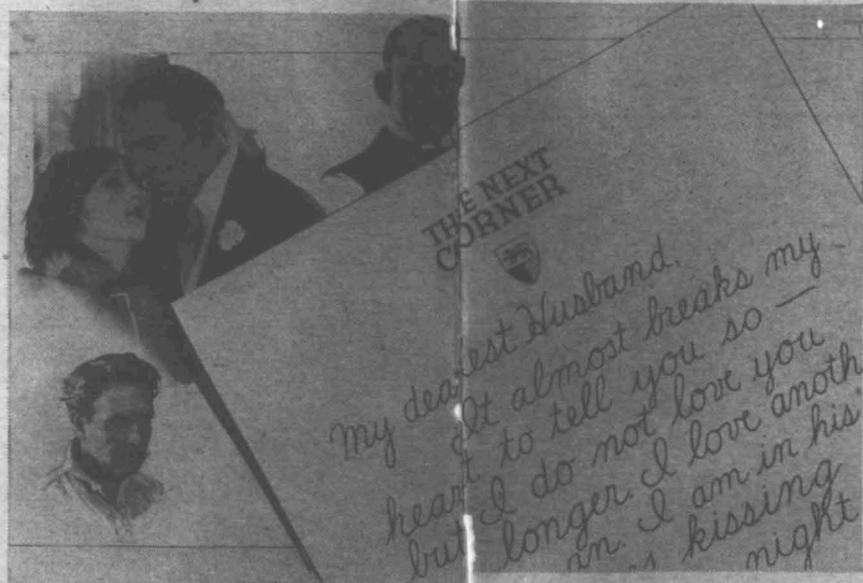 THE NEXT
CORNER
My dearest Husband.
It almost breaks my
heart to tell you so —
but I do not love you
longer. I love anoth
in. I am in his
kissing
night